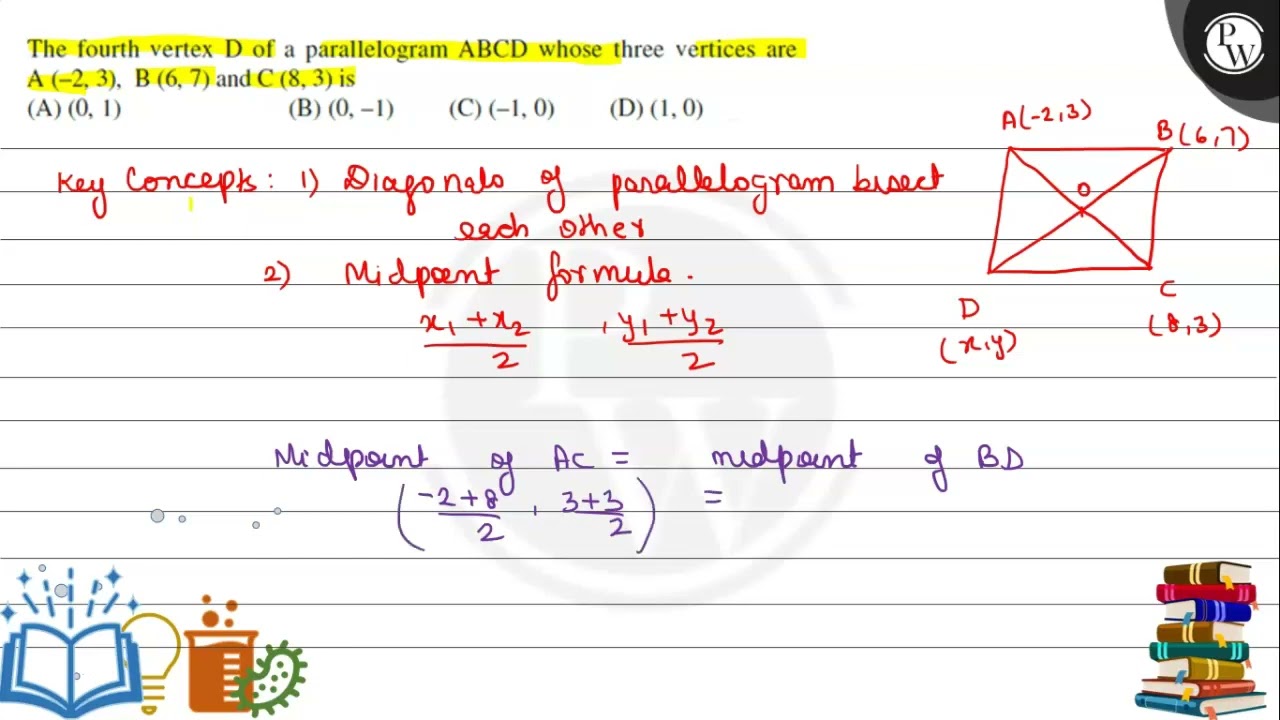 The fourth vertex D of a parallelogram ABCD whose three vertices are
A (–2, 3), B (6, 7) and C (8, 3) is
(A) (0, 1) (B) (0, –1) (C) (–1, 0) (D) (1, 0)
PW
A(-2,3)
B(6,7)
O
D
(x,y)
C
(8,3)
Key Concepts: 1) Diagonals of parallelogram bisect
each other
2) Midpoint formula.
x₁ + x₂ / 2 , y₁ + y₂ / 2
Midpoint of AC = midpoint of BD
(-2+8 / 2 , 3+3 / 2) =